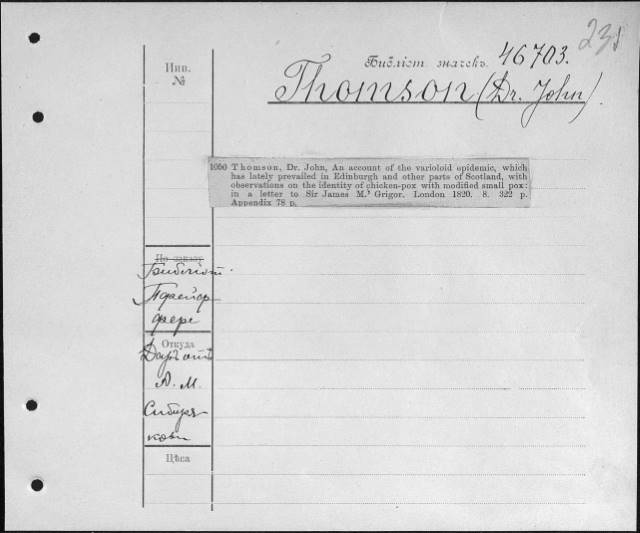 23
Библіот. значекъ. 46703.
Инв.
№
Thomson (Dr. John).
1050 Thomson, Dr. John, An account of the varioloid epidemic, which
has lately prevailed in Edinburgh and other parts of Scotland, with
observations on the identity of chicken-pox with modified small pox:
in a letter to Sir James M.' Grigor. London 1820. 8. 322 p.
Appendix 78 p.
По заказу
Библіот.
Пфейф
фера
Откуда
Даръ отъ
А. М.
Сибиря
кова
Цѣса